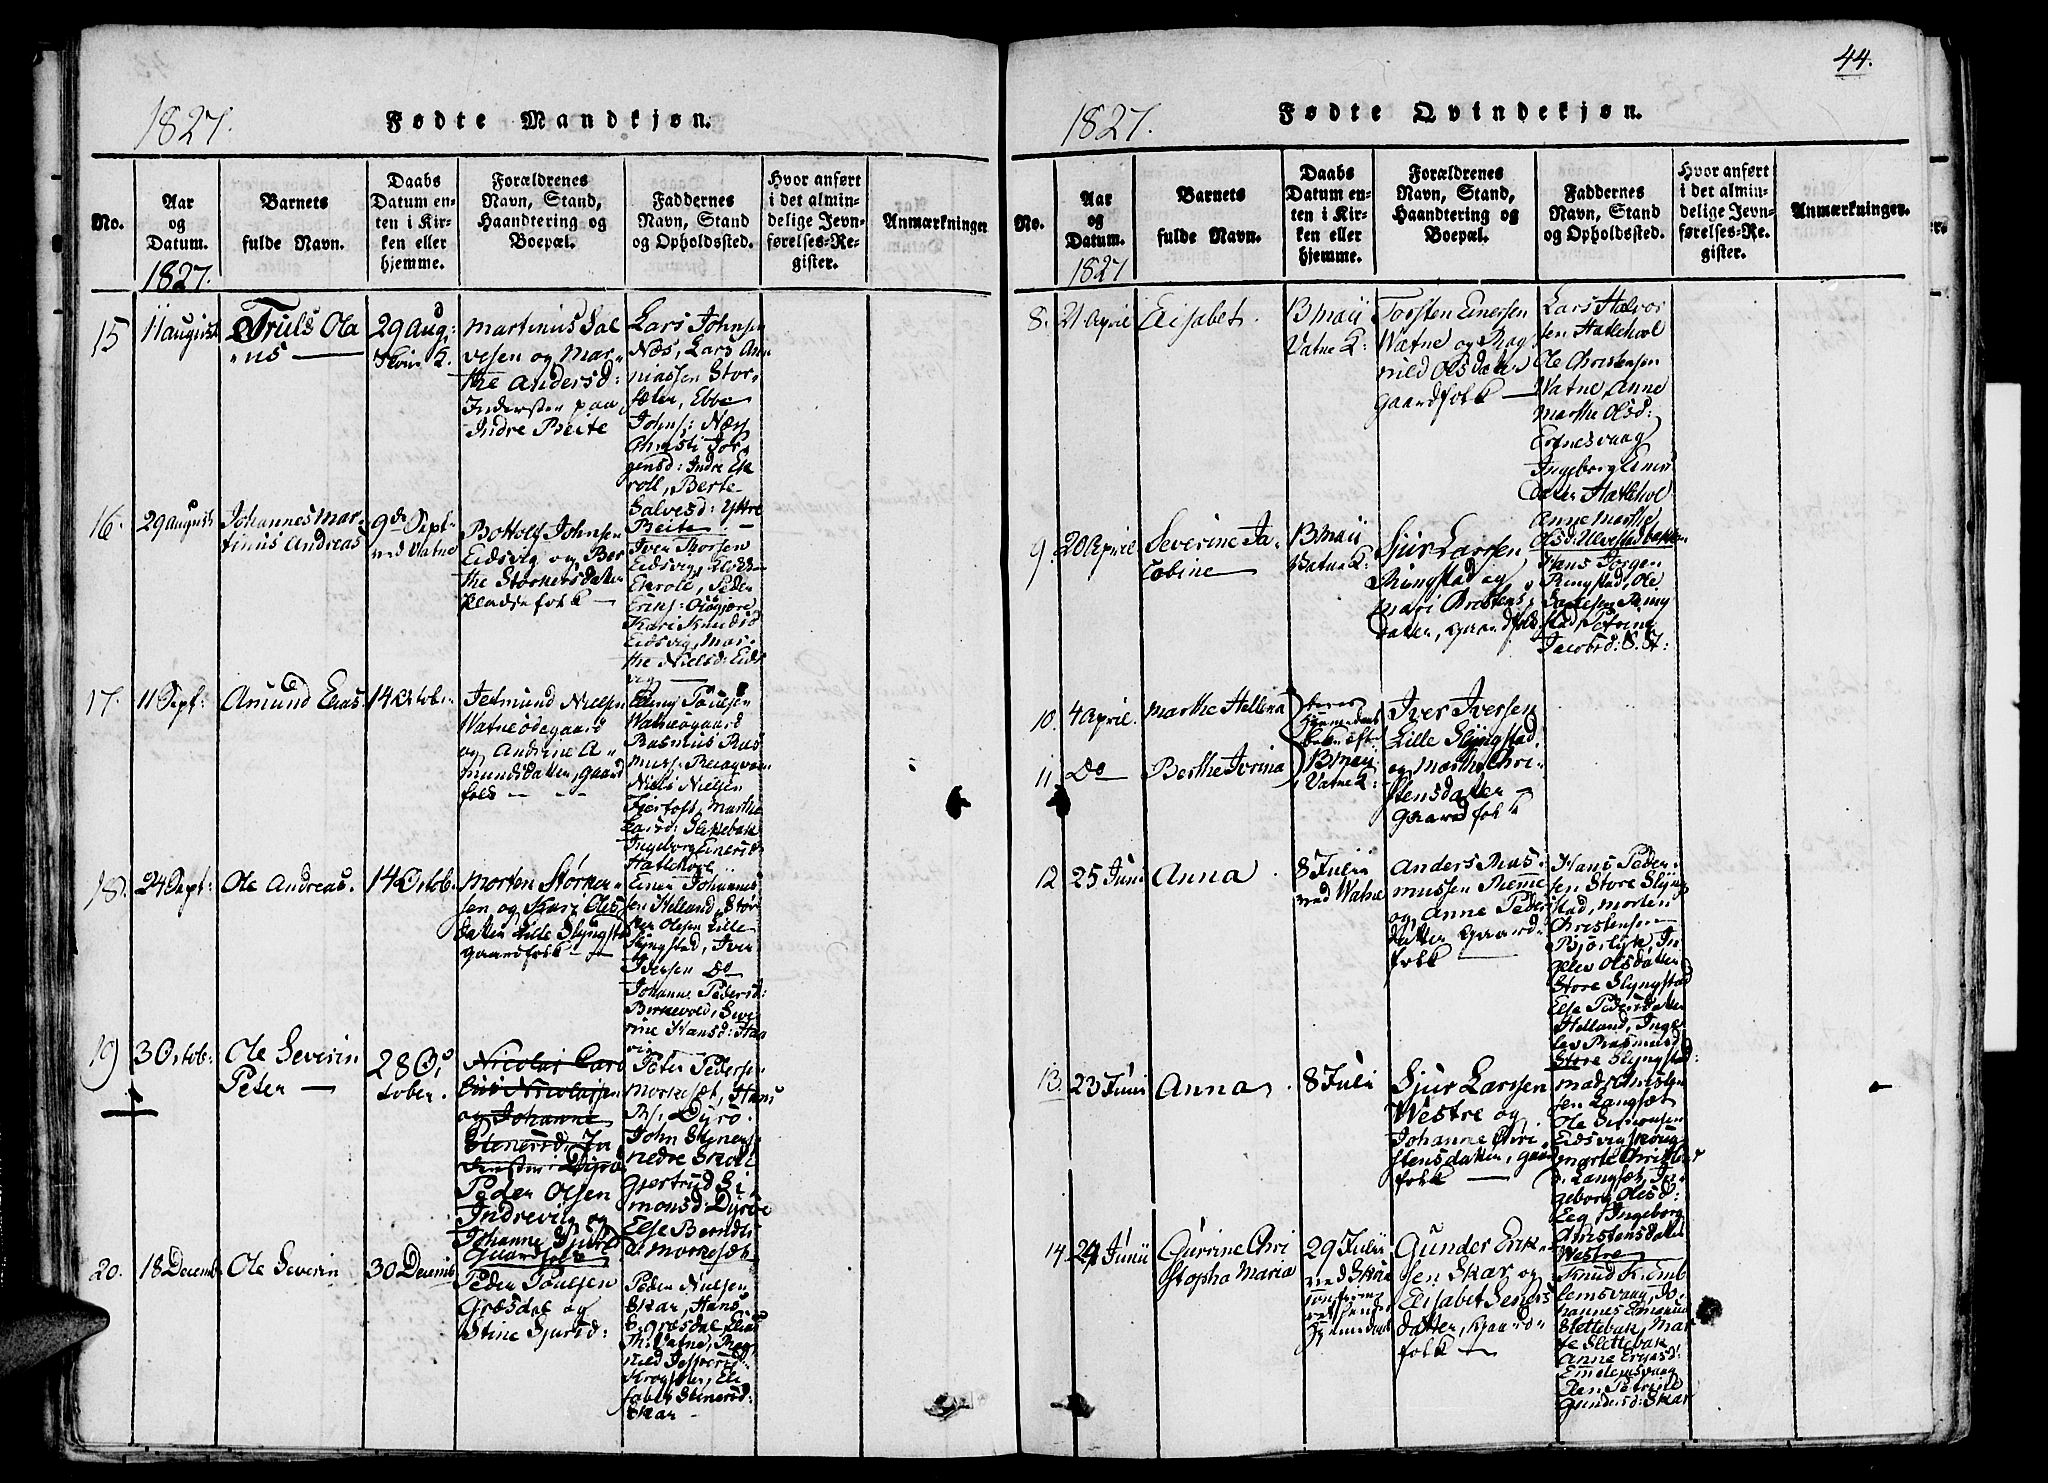 44.
1827.
Fødte Mandkjøn.
No.
Aar
og
Datum.
1827.
Barnets
fulde Navn.
Daabs
Datum en-
ten i Kir-
ken eller
hjemme.
Forældrenes
Navn, Stand,
Haandtering og
Boepæl.
Faddernes
Navn, Stand
og Opholdssted.
Hvor anført
i det almin-
delige Jevn-
førelses-Re-
gister.
Anmærkninger
15
11 August
Truls Ola
us
29 Aug:
Martinus Sal
vesen og Mar-
the Andersd:
Indersten paa
Indre Beite
Lars Johnsen
Næs, Lars An
niassen Stor-
Ebbe
Johns: Næs
Christi Jør
gensd: Indre Ek
roll, Berte
Salvesd: Yttre
Beite
16.
29 August
Johannes Mar-
tinus Andreas
9de Sept
ved Vatne
Bottolf Johnsen
Eidsvig og Ber
the Størkersdatter
Pladsefolk
Iver Thorsen
Eidsvig,
Ekrole, Peder
Eriks:
Kari Knudsd
Eidsvig, Mar-
the Nielsd: Eids
vig
17.
11 Sept:
Amund Elias
14 Octob:
Jetmund Nielsen
Watneødegaard
og Andrine A-
mundsdatter, gaard
folk
Poulsen
Watneøgaard
Rasmus Ras
muss:
Niels Nielsen
Fjørtoft, Marthe
Larsd: Slettebak
Ingeborg Einersd
Hatlehole
18.
24 Sept:
Ole Andreas.
14 Octob.
Morten Størker-
sen og Kari Oles
datter Lille Slyngstad
gaardfolk
Einer Johannes
sen Helland, Stør
ker Olesen Lille
Slyngstad, Iver
Iversen Do
Johanne Pedersd:
Birkevold, Seve
rine Hansd: Haa
vig
19
3 Octob:
Ole Severin
Peter
28 Oc
tober
Nicolai Caro
lius Nicolaisen
og Johanne
Stenersd: In
dersten Dyrø
Peder Olsen
Indrevig og
Johanne Sjursd
Gaardfolk
Peter Peders:
Morkesæt, Hans
Dyrø.
John Steners:
nedre Skoll
Gjertrud Si
monsd: Dyrøe
Else Berndts
d: Morkesæth
20.
18 Decemb
Ole Severin
30 Decemb
Peder Poulsen
Græsdal og
Stine Sjursd:
Peder Nielsen
Skar, Hans
Græsdal, Elias
Vatne, Rag
nild Jespersd
Eli
sabet Stenersd:
Skar
1827.
Fødte Qvindekjøn.
No.
Aar
og
Datum.
1827
Barnets
fulde Navn.
Daabs
Datum en-
ten i Kir-
ken eller
hjemme.
Forældrenes
Navn, Stand,
Haandtering og
Boepæl.
Faddernes
Navn, Stand
og Opholdssted.
Hvor anført
i det almin-
delige Jevn-
førelses-Re-
gister.
Anmærkninger.
8.
21 April
Elisabet.
13 Maii
Vatne K:
Torsten Einersen
Watne og Rag
nild Olsdatter
Gaardfolk
Lars Halvor
sen Hatlehol
Ole Christensen
Watne, Anne
Marthe Olsd:
Ertnesvaag
Ingeborg Einers
datter Hatlehol
Anne Marthe
Olsd: Ulvestadbakken
9.
20 April
Severine Ja
cobine
13 Maii
Vatne K:
Sjur Larsen
Ringstad og
Mari Christens
datter, gaardfolk
Hans Jørgen
Ringstad, Ole
Ring
stad, Petrine
Jacobsd: S. St:
10.
4 April.
Marthe Hellena
11.
Do
Berthe Ivrina
13 Maii
Vatne K:
Iver Iversen
Lille Slyngstad
og Marthe Chri-
stensdatter
gaardfolk
12
25 Junii
Anna
8 Julii
ved Watne
Anders Ras
mussen Remme
og Anne Peders
datter gaard-
folk
Hans Peder-
sen Store Slyng
stad, Morten
Christensen
Bjørlyk, In
gelev Olsdatter
Store Slyngstad
Else Pedersdatter
Helland, Inge
lev Rasmusd
Store Slyngstad:
13.
23 Junii
Anna
8 Julii
Sjur Larssen
Westre og
Johanne Chri
stensdatter, gaard
folk
Mads Christen
sen Langsæt
Ole Simensen
Eidsvigskoug
Marte Christens
d. Langsæt, In-
geborg Olesd:
Eeg, Ingeborg
Christensdatter
Westre
14.
24 Junii
Gurine Chri
stopha Maria
29 Julii
ved Skou
Hjemmedaab
Gunder Erik-
sen Skar og
Elisabet Steners
datter, gaard-
folk
Knud Kumb
lemsvaag, Jo-
hannes Emanuel
Slettebak, Mar
te Slettebak
Anne
Emblemsvaag
Elen Petrille
Gundersd: Skar